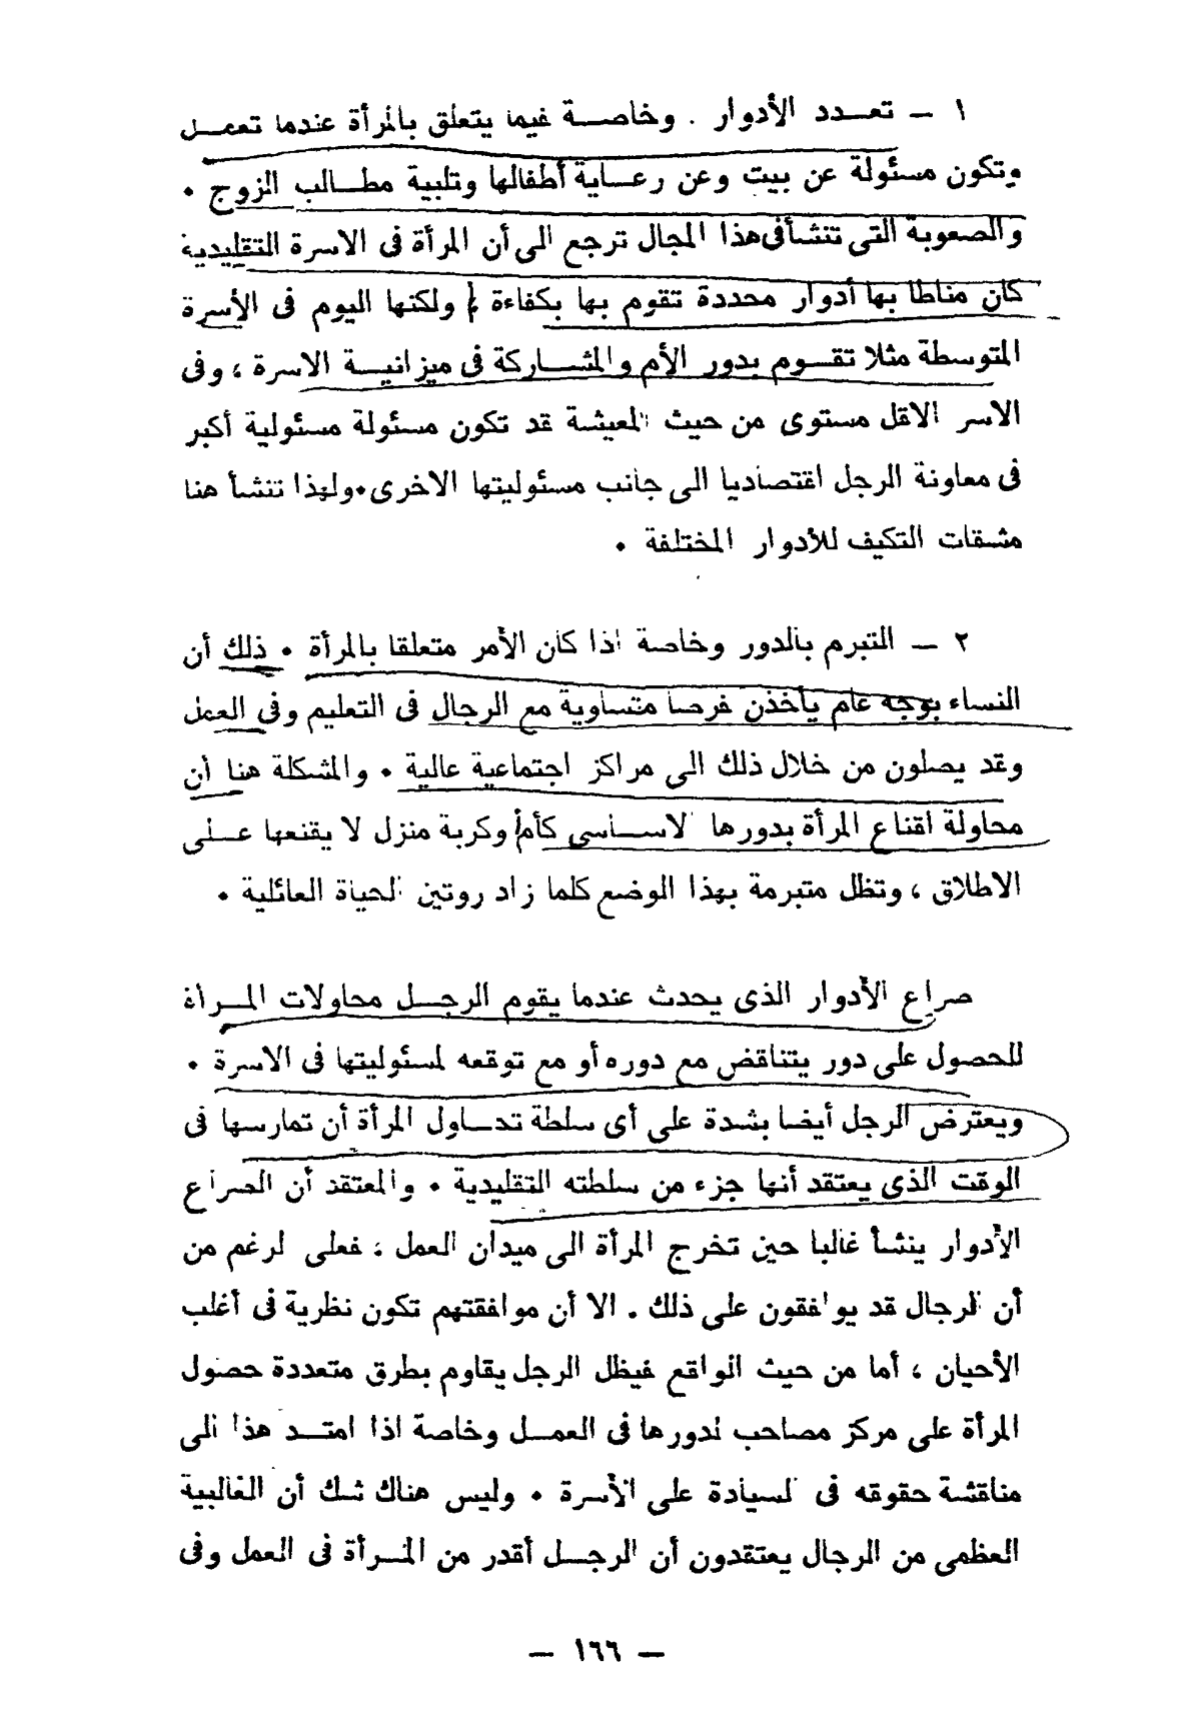 ١ ــ تعــدد الأدوار . وخاصــة فيما يتعلق بالمرأة عندما تعمــل
وتكون مسئولة عن بيت وعن رعــاية أطفالها وتلبية مطــالب الزوج .
والصعوبة التى تنشأفى هذا المجال ترجع الى أن المرأة فى الاسرة التقليدية
كان مناطا بها أدوار محددة تقوم بها بكفاءة ولكنها اليوم فى الأسرة
المتوسطة مثلا تقــوم بدور الأم والمشــاركة فى ميزانيــة الاسرة ، وفى
الاسر الاقل مستوى من حيث المعيشة قد تكون مسئولة مسئولية أكبر
فى معاونة الرجل اقتصاديا الى جانب مسئوليتها الاخرى.ولهذا تنشأ هنا
مشقات التكيف للأدوار المختلفة .
٢ ــ التبرم بالدور وخاصة اذا كان الأمر متعلقا بالمرأة . ذلك أن
النساء بوجه عام يأخذن فرصا متساوية مع الرجال فى التعليم وفى العمل
وقد يصلون من خلال ذلك الى مراكز اجتماعية عالية . والمشكلة هنا أن
محاولة اقناع المرأة بدورها الاســاسى كأم وكربة منزل لا يقنعها عــلى
الاطلاق ، وتظل متبرمة بهذا الوضع كلما زاد روتين الحياة العائلية .
صراع الأدوار الذى يحدث عندما يقوم الرجــل محاولات المــرأة
للحصول على دور يتناقض مع دوره أو مع توقعه لمسئوليتها فى الاسرة .
ويعترض الرجل أيضا بشدة على أى سلطة تحــاول المرأة أن تمارسها فى
الوقت الذى يعتقد أنها جزء من سلطته التقليدية . والمعتقد أن الصراع
الأدوار ينشأ غالبا حين تخرج المرأة الى ميدان العمل ، فعلى الرغم من
أن الرجال قد يوافقون على ذلك . الا أن موافقتهم تكون نظرية فى أغلب
الأحيان ، أما من حيث الواقع فيظل الرجل يقاوم بطرق متعددة حصول
المرأة على مركز مصاحب لدورها فى العمــل وخاصة اذا امتــد هذا الى
مناقشة حقوقه فى السيادة على الأسرة . وليس هناك شك أن الغالبية
العظمى من الرجال يعتقدون أن الرجــل أقدر من المــرأة فى العمل وفى
ــ ١٦٦ ــ